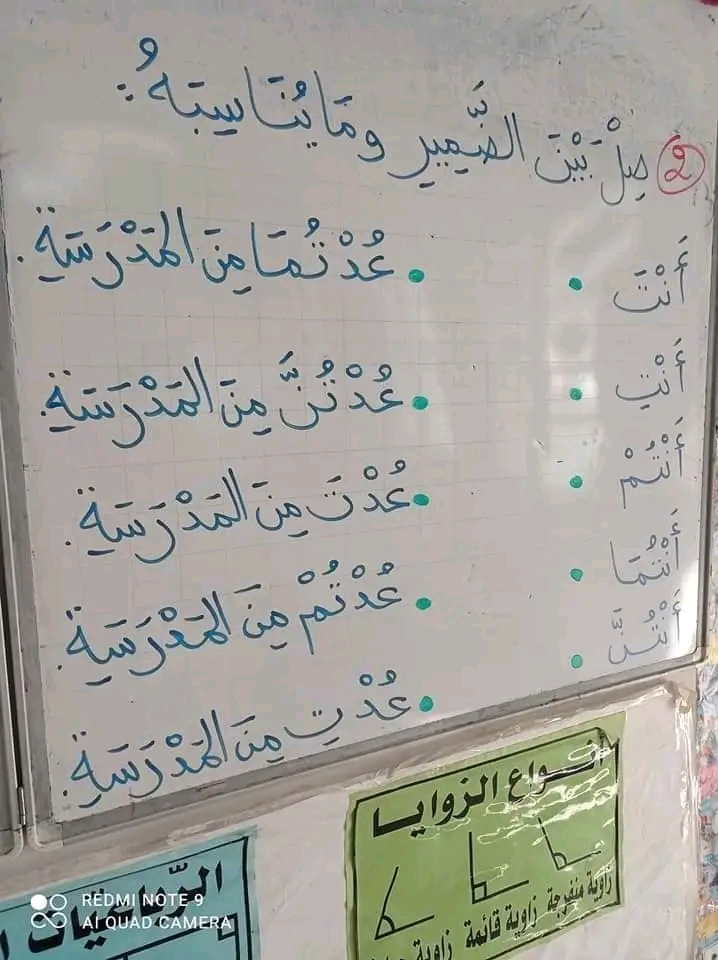 ② صِلْ بَيْنَ الضَّمِيرِ وَمَا يُنَاسِبُهُ:
أَنْتَ
عُدْتُمَا مِنَ المَدْرَسَةِ.
أَنْتِ
عُدْتُنَّ مِنَ المَدْرَسَةِ.
أَنْتُمْ
عُدْتَ مِنَ المَدْرَسَةِ.
أَنْتُمَا
عُدْتُمْ مِنَ المَدْرَسَةِ.
أَنْتُنَّ
عُدْتِ مِنَ المَدْرَسَةِ.
أنواع الزوايا
زاوية منفرجة زاوية قائمة زاوية
REDMI NOTE 9
AI QUAD CAMERA